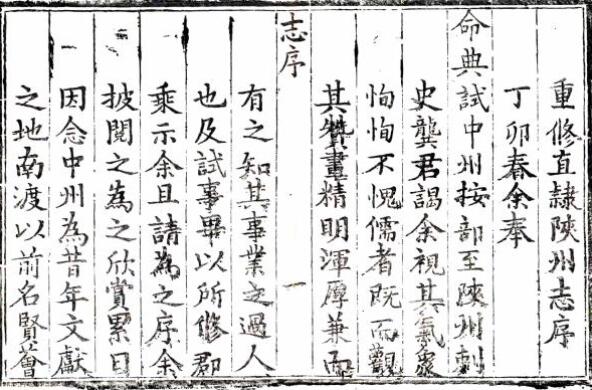 重修直隷陝州志序
丁卯春余奉
命典試中州按部至陝州刺
史龔君謁余視其氣象
恂恂不愧儒者既而觀
其贊畫精明渾厚兼而
志序 一
有之知其事業之過人
也及試事畢以所修郡
乘示余且請為之序余
披閱之為之欣賞累日
因念中州為昔年文獻
之地南渡以前名賢薈